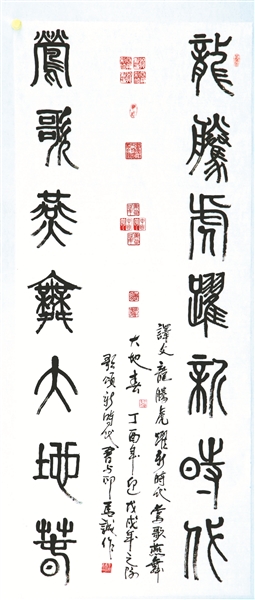 龍騰虎躍新時代
鶯歌燕舞大地春
譯文 龍騰虎躍新時代 鶯歌燕舞
大地春 丁酉年迎戊戌年之際
歌頌新時代 書与印 馬誠作